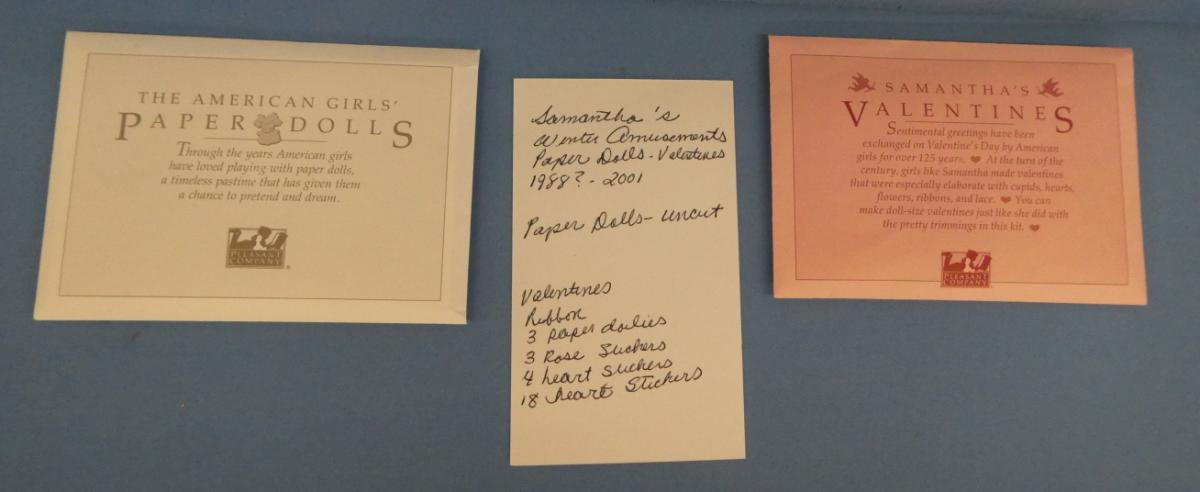 THE AMERICAN GIRLS'
PAPER DOLLS
Through the years American girls
have loved playing with paper dolls,
a timeless pastime that has given them
a chance to pretend and dream.
PLEASANT
COMPANY®
Samantha's
Winter Amusements
Paper Dolls - Valentines
1988? - 2001
Paper Dolls - uncut
Valentines
Ribbon
3 paper doilies
3 Rose Stickers
4 heart stickers
18 heart Stickers
SAMANTHA'S
VALENTINES
Sentimental greetings have been
exchanged on Valentine's Day by American
girls for over 125 years. ❤ At the turn of the
century, girls like Samantha made valentines
that were especially elaborate with cupids, hearts,
flowers, ribbons, and lace. ❤ You can
make doll-size valentines just like she did with
the pretty trimmings in this kit. ❤
PLEASANT
COMPANY